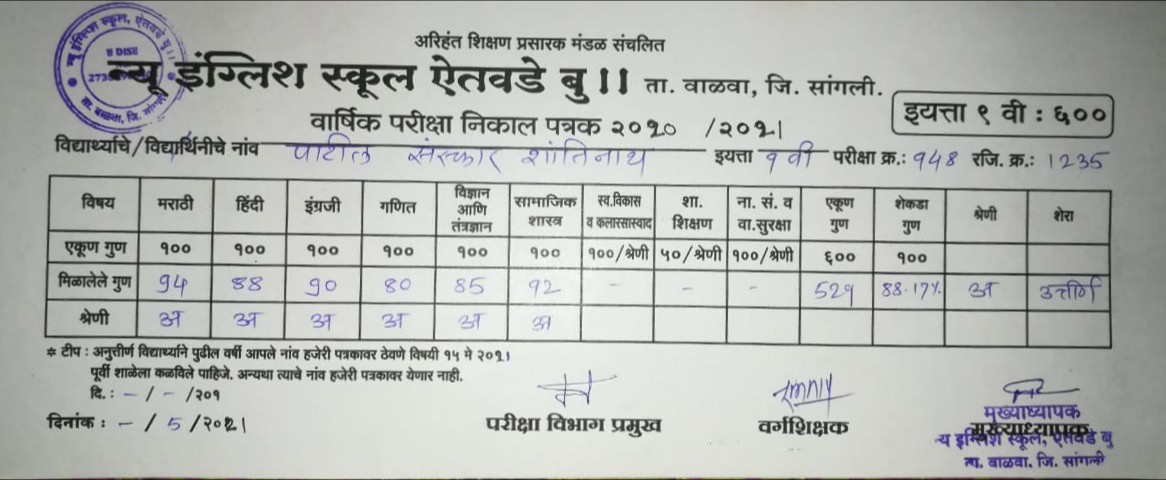 न्यू इंग्लिश स्कूल, ऐतवडे बु॥
U DISE
ता. वाळवा, जि. सांगली
अरिहंत शिक्षण प्रसारक मंडळ संचलित
न्यू इंग्लिश स्कूल ऐतवडे बु॥ ता. वाळवा, जि. सांगली.
वार्षिक परीक्षा निकाल पत्रक २०२० /२०२१ इयत्ता ९ वी : ६००
विद्यार्थ्याचे/विद्यार्थिनीचे नांव पाटील संस्कार शांतिनाथ इयत्ता ९ वी परीक्षा क्र.: ९४8 रजि. क्र.: 1235
विषय मराठी हिंदी इंग्रजी गणित विज्ञान आणि तंत्रज्ञान सामाजिक शास्त्र स्व.विकास व कलारसास्वाद शा. शिक्षण ना. सं. व वा.सुरक्षा एकूण गुण शेकडा गुण श्रेणी शेरा
एकूण गुण १०० १०० १०० १०० १०० १०० १००/श्रेणी ५०/श्रेणी १००/श्रेणी ६०० १००
मिळालेले गुण 94 88 90 80 85 92 - - - 529 88.17% अ उत्तीर्ण
श्रेणी अ अ अ अ अ अ
* टीप : अनुत्तीर्ण विद्यार्थ्याने पुढील वर्षी आपले नांव हजेरी पत्रकावर ठेवणे विषयी १५ मे २०२१
पूर्वी शाळेला कळविले पाहिजे. अन्यथा त्याचे नांव हजेरी पत्रकावर येणार नाही.
दि.: - / - /२०१
दिनांक : - / 5 /२०२१
परीक्षा विभाग प्रमुख वर्गशिक्षक मुख्याध्यापक
मुख्याध्यापक
न्यू इंग्लिश स्कूल, ऐतवडे बु
ता. वाळवा. जि. सांगली